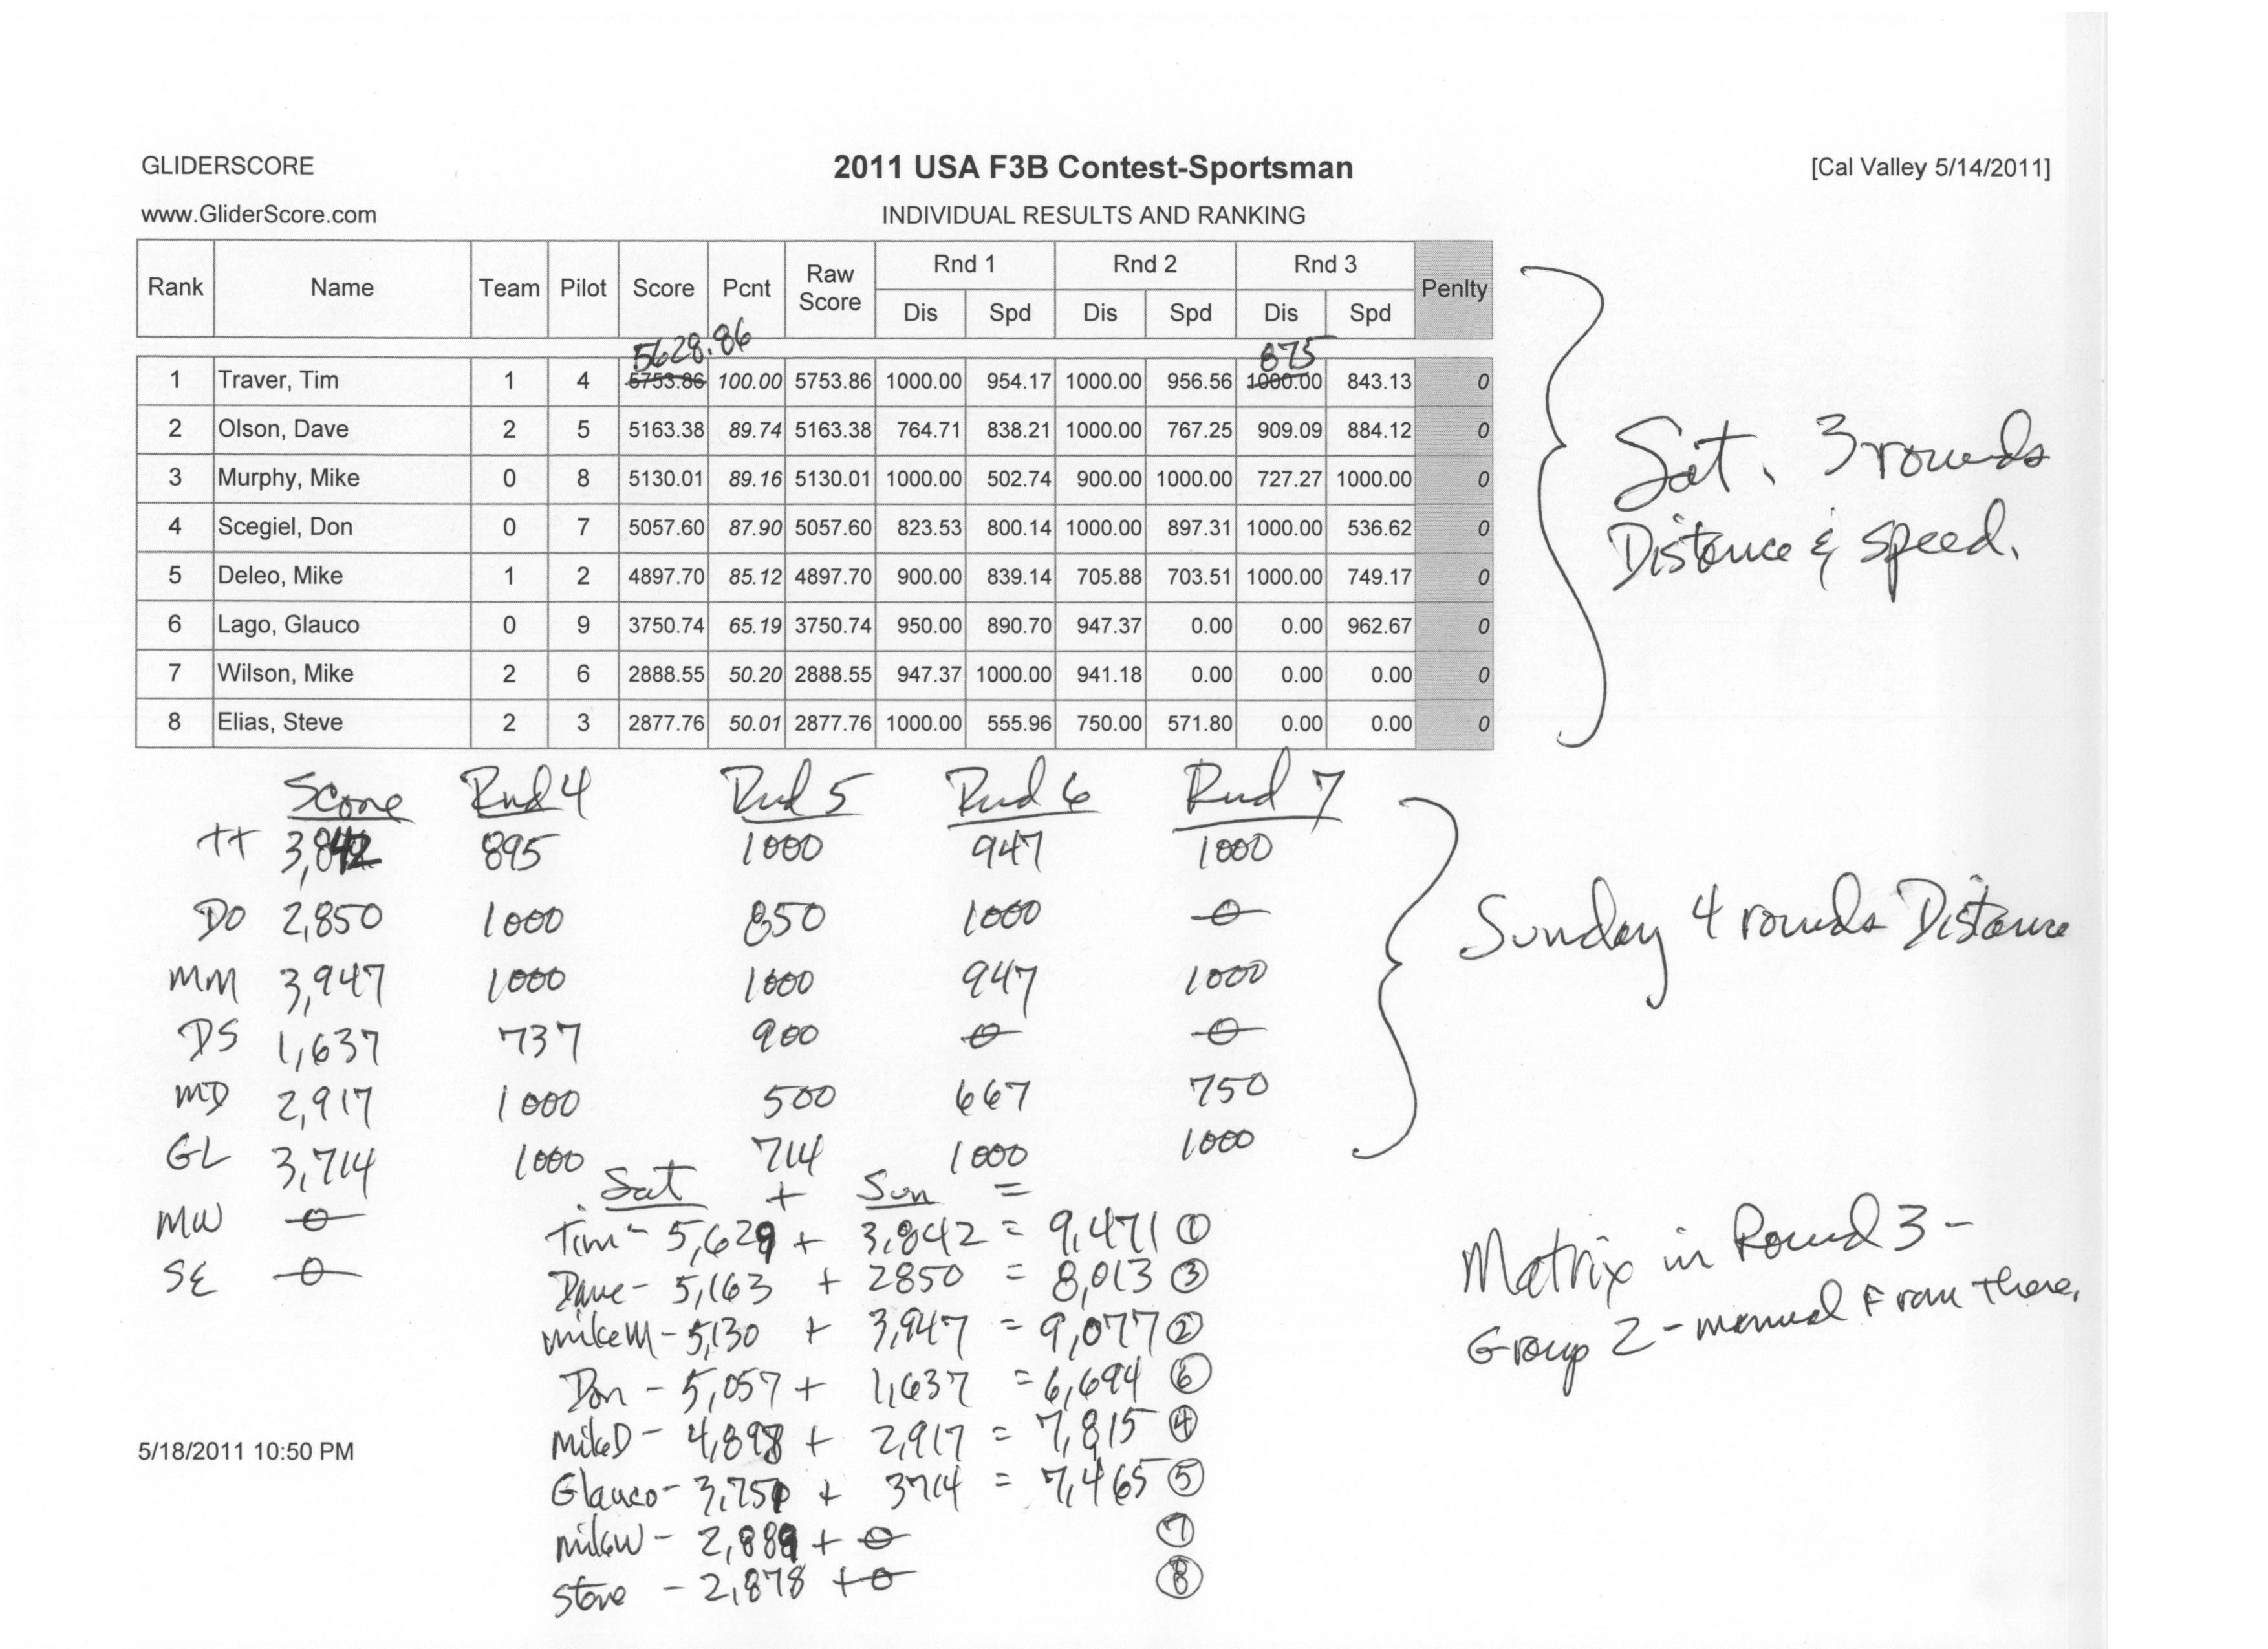 GLIDERSCORE 2011 USA F3B Contest-Sportsman [Cal Valley 5/14/2011]
www.GliderScore.com INDIVIDUAL RESULTS AND RANKING
Rank Name Team Pilot Score Pcnt Raw Score Rnd 1 Rnd 2 Rnd 3 Penlty
Dis Spd Dis Spd Dis Spd
5628.86 875
1 Traver, Tim 1 4 5753.86 100.00 5753.86 1000.00 954.17 1000.00 956.56 1000.00 843.13 0
2 Olson, Dave 2 5 5163.38 89.74 5163.38 764.71 838.21 1000.00 767.25 909.09 884.12 0
3 Murphy, Mike 0 8 5130.01 89.16 5130.01 1000.00 502.74 900.00 1000.00 727.27 1000.00 0
4 Scegiel, Don 0 7 5057.60 87.90 5057.60 823.53 800.14 1000.00 897.31 1000.00 536.62 0
5 Deleo, Mike 1 2 4897.70 85.12 4897.70 900.00 839.14 705.88 703.51 1000.00 749.17 0
6 Lago, Glauco 0 9 3750.74 65.19 3750.74 950.00 890.70 947.37 0.00 0.00 962.67 0
7 Wilson, Mike 2 6 2888.55 50.20 2888.55 947.37 1000.00 941.18 0.00 0.00 0.00 0
8 Elias, Steve 2 3 2877.76 50.01 2877.76 1000.00 555.96 750.00 571.80 0.00 0.00 0
Sat. 3 rounds
Distance & speed.
Score Rnd 4 Rnd 5 Rnd 6 Rnd 7
TT 3,842 895 1000 947 1000
DO 2,850 1000 850 1000 0
MM 3,947 1000 1000 947 1000
DS 1,637 737 900 0 0
MD 2,917 1000 500 667 750
GL 3,714 1000 714 1000 1000
MW 0
SE 0
Sunday 4 rounds Distance
Sat + Sun =
Tim - 5,629 + 3,842 = 9,471 1
Dave - 5,163 + 2850 = 8,013 3
mikeM - 5,130 + 3,947 = 9,077 2
Don - 5,057 + 1,637 = 6,694 6
MikeD - 4,898 + 2,917 = 7,815 4
Glauco - 3,751 + 3714 = 7,465 5
mikeW - 2,889 + 0 7
Steve - 2,878 + 0 8
Matrix in Round 3 -
Group 2 - manual From there.
5/18/2011 10:50 PM